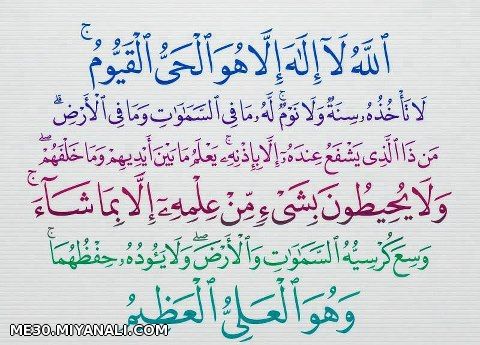 ٱللَّهُ لَآ إِلَٰهَ إِلَّا هُوَ ٱلْحَىُّ ٱلْقَيُّومُ ۚ
لَا تَأْخُذُهُۥ سِنَةٌ وَلَا نَوْمٌ ۚ لَّهُۥ مَا فِى ٱلسَّمَٰوَٰتِ وَمَا فِى ٱلْأَرْضِ ۗ
مَن ذَا ٱلَّذِى يَشْفَعُ عِندَهُۥٓ إِلَّا بِإِذْنِهِۦ ۚ يَعْلَمُ مَا بَيْنَ أَيْدِيهِمْ وَمَا خَلْفَهُمْ ۖ
وَلَا يُحِيطُونَ بِشَىْءٍ مِّنْ عِلْمِهِۦٓ إِلَّا بِمَا شَآءَ ۚ
وَسِعَ كُرْسِيُّهُ ٱلسَّمَٰوَٰتِ وَٱلْأَرْضَ ۖ وَلَا يَـُٔودُهُۥ حِفْظُهُمَا ۚ
وَهُوَ ٱلْعَلِىُّ ٱلْعَظِيمُ
ME30.MIYANALI.COM